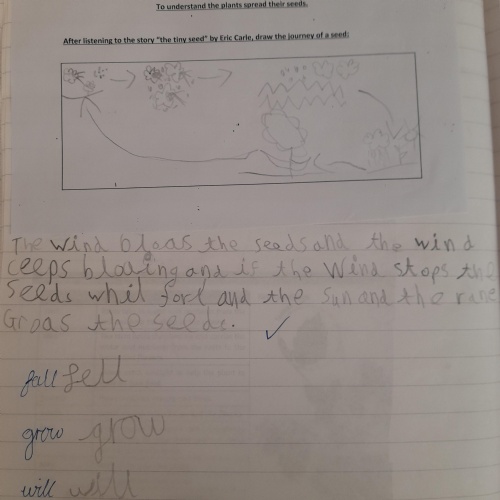 To understand the plants spread their seeds.
After listening to the story "the tiny seed" by Eric Carle, draw the journey of a seed:
The wind bloas the seeds and the wind
ceeps bloving and if the wind stops the
seeds whil forl and the sun and the rane
Groas the seeds.
fall fell
grow grow
will will